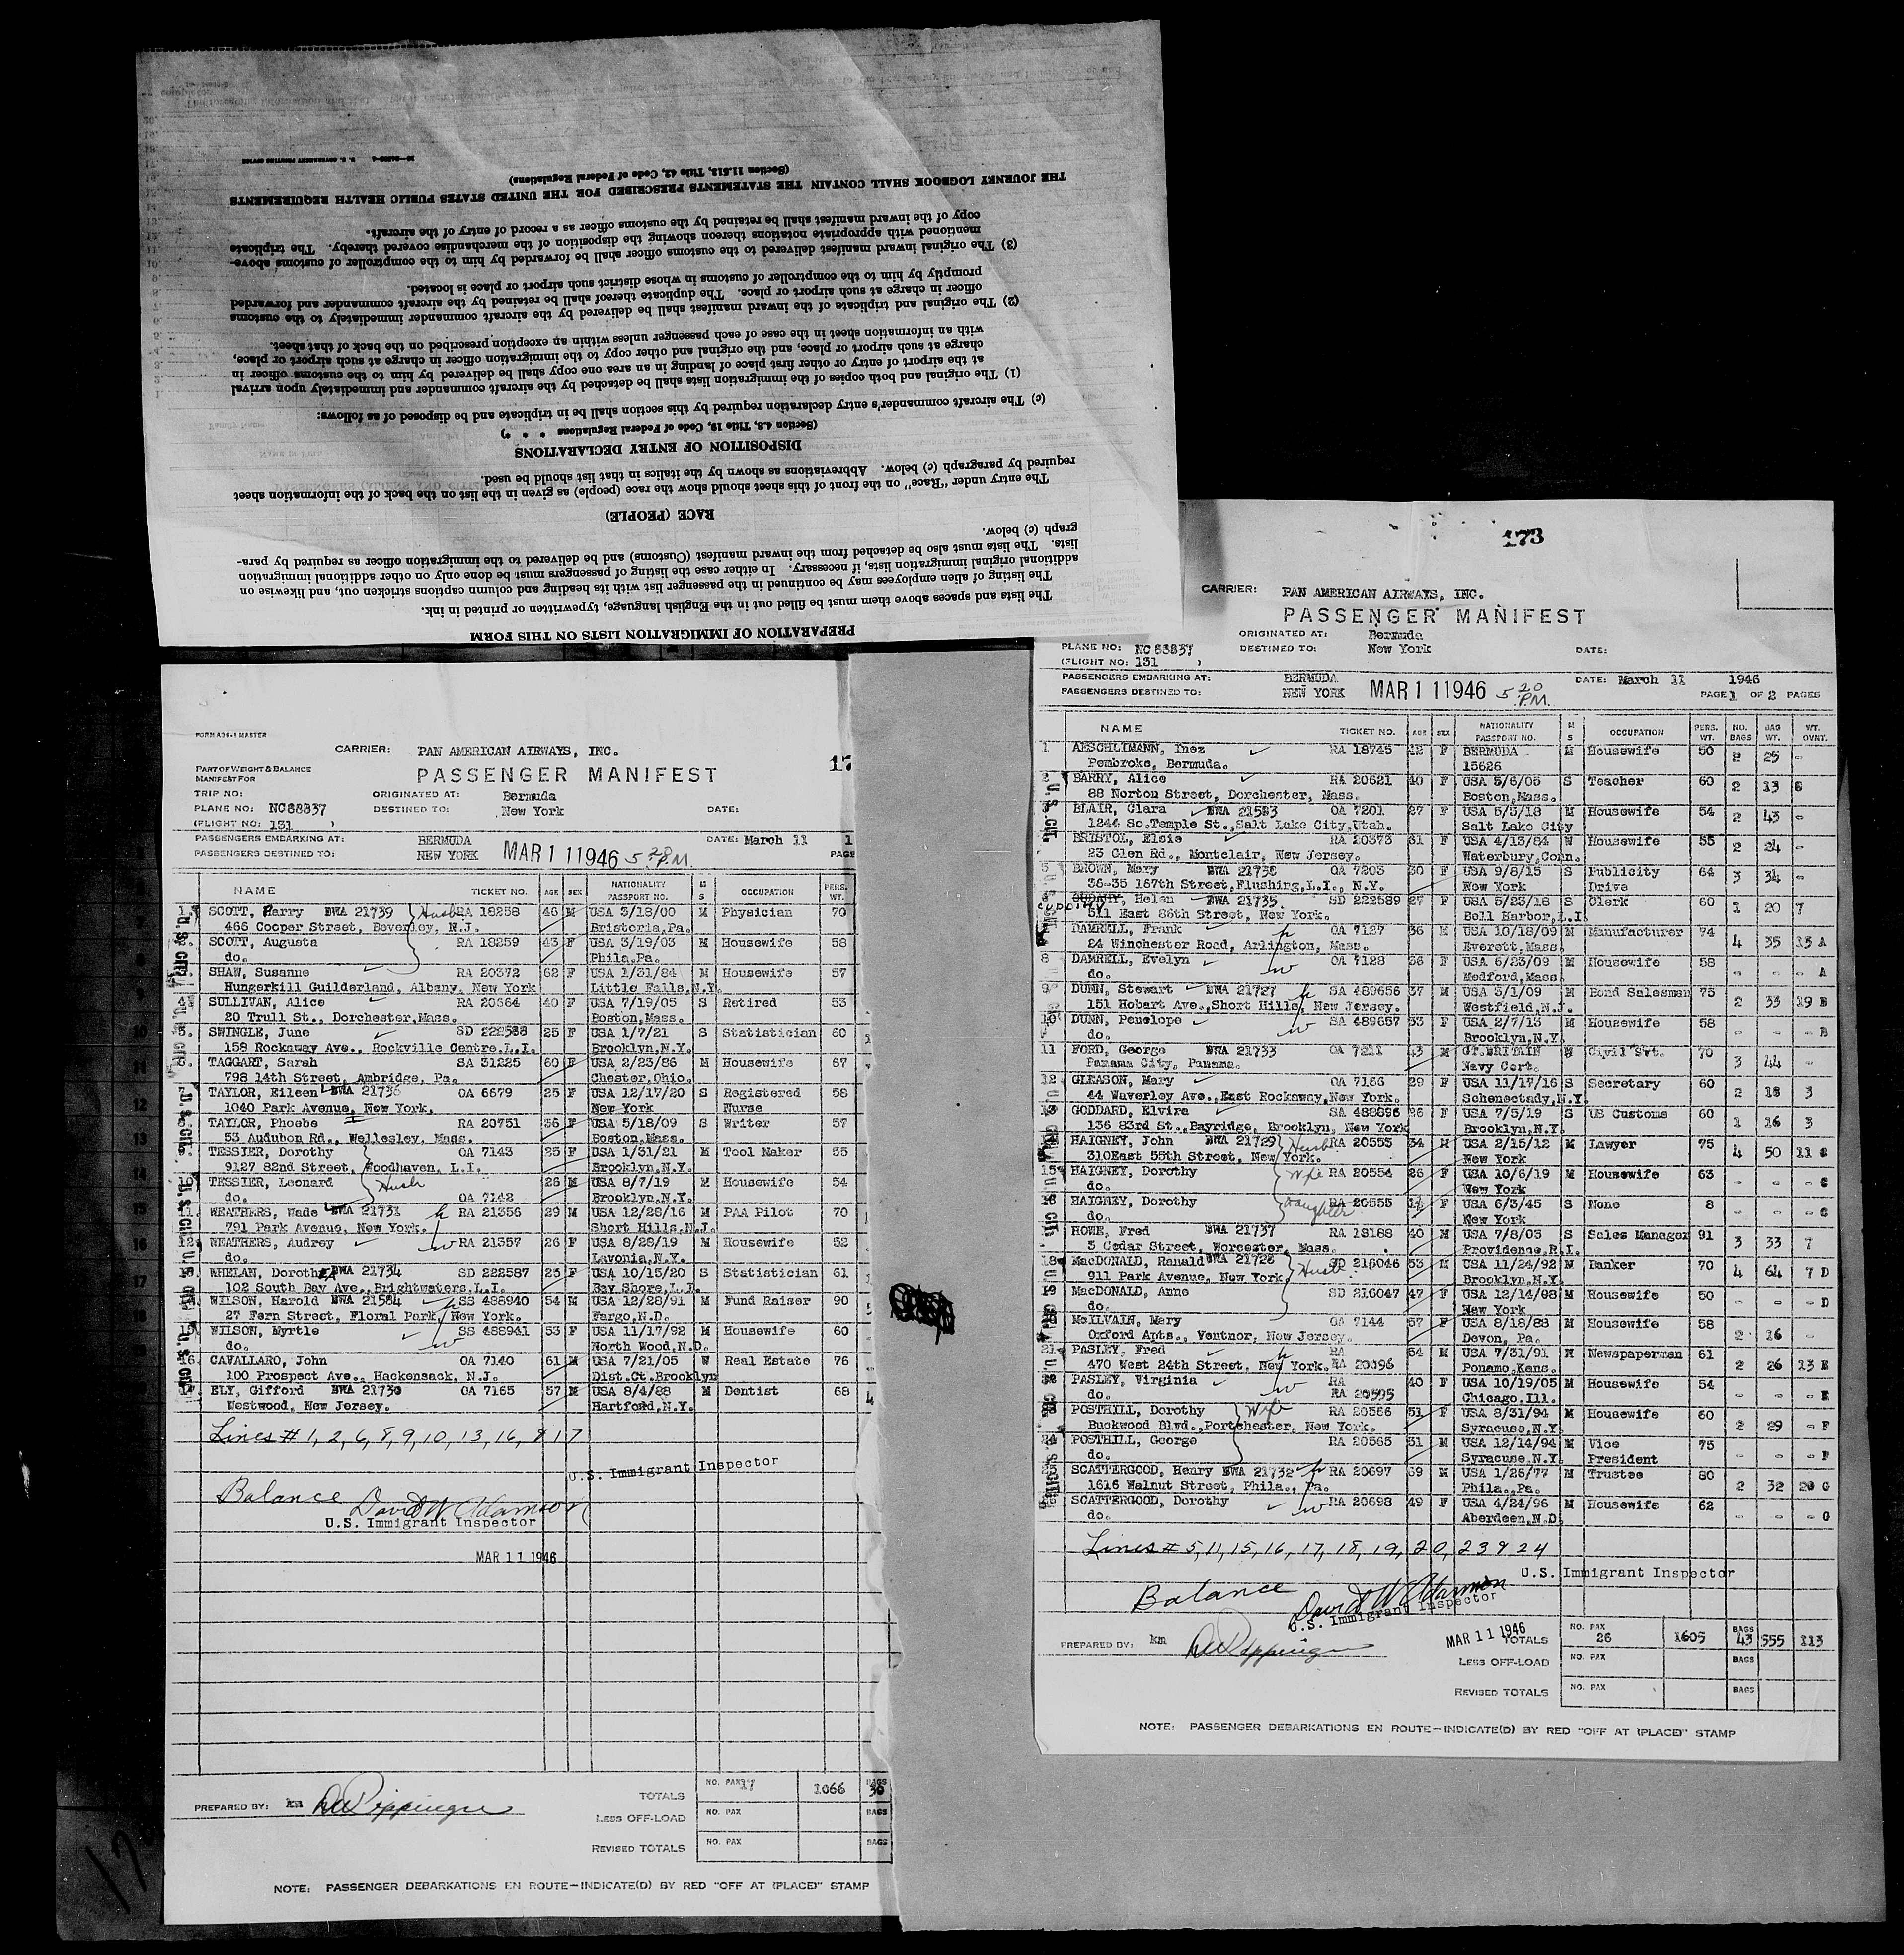 PREPARATION OF IMMIGRATION LISTS ON THIS FORM
The lists and spaces above them must be filled out in the English language, typewritten or printed in ink.
The listing of alien employees may be continued in the passenger list with its heading and column captions stricken out, and likewise on
additional original immigration lists, if necessary. In either case the listing of passengers must be done only on other additional immigration
lists. The lists must also be detached from the inward manifest (Customs) and be delivered to the immigration officer as required by para-
graph (c) below.
RACE (PEOPLE)
The entry under "Race" on the front of this sheet should show the race (people) as given in the list on the back of the information sheet
required by paragraph (c) below. Abbreviations as shown by the italics in that list should be used.
DISPOSITION OF ENTRY DECLARATIONS
(Section 4.8, Title 19, Code of Federal Regulations * * *)
(c) The aircraft commander's entry declaration required by this section shall be in triplicate and be disposed of as follows:
(1) The original and both copies of the immigration lists shall be detached by the aircraft commander and immediately upon arrival
at the airport of entry or other first place of landing in an area one copy shall be delivered by him to the customs officer in
charge at such airport or place, and the original and other copy to the immigration officer in charge at such airport or place,
with an information sheet in the case of each passenger unless within an exception prescribed on the back of that sheet.
(2) The original and triplicate of the inward manifest shall be delivered by the aircraft commander immediately to the customs
officer in charge at such airport or place. The duplicate thereof shall be retained by the aircraft commander and forwarded
promptly by him to the comptroller of customs in whose district such airport or place is located.
(3) The original inward manifest delivered to the customs officer shall be forwarded by him to the comptroller of customs above-
mentioned with appropriate notations thereon showing the disposition of the merchandise covered thereby. The triplicate
copy of the inward manifest shall be retained by the customs officer as a record of entry of the aircraft.
THE JOURNEY LOGBOOK SHALL CONTAIN THE STATEMENTS PRESCRIBED FOR THE UNITED STATES PUBLIC HEALTH REQUIREMENTS
(Section 11.513, Title 42, Code of Federal Regulations)
U. S. GOVERNMENT PRINTING OFFICE
FORM A36-1 MASTER
CARRIER: PAN AMERICAN AIRWAYS, INC.
17
PART OF WEIGHT & BALANCE
PASSENGER MANIFEST
MANIFEST FOR
TRIP NO: ORIGINATED AT: Bermuda
PLANE NO: NC88837 DESTINED TO: New York DATE:
(FLIGHT NO: 131 )
PASSENGERS EMBARKING AT: BERMUDA DATE: March 11 1
PASSENGERS DESTINED TO: NEW YORK MAR 11 1946 5 20 P.M. PAGE
NAME TICKET NO. AGE SEX NATIONALITY PASSPORT NO. M S OCCUPATION PERS. WT.
1. SCOTT, Harry BWA 21739 Husb RA 18258 46 M USA 3/18/00 M Physician 70
466 Cooper Street, Beverley, N.J. Bristoria,Pa.
SCOTT, Augusta RA 18259 43 F USA 3/19/03 M Housewife 58
do. Phila.Pa.
SHAW, Susanne RA 20372 62 F USA 1/31/84 M Housewife 57
Hungerkill Guilderland, Albany, New York Little Falls,N.Y.
SULLIVAN, Alice RA 20364 40 F USA 7/19/05 S Retired 53
20 Trull St., Dorchester,Mass. Boston,Mass.
SWINGLE, June SD 222588 25 F USA 1/7/21 S Statistician 60
158 Rockaway Ave., Rockville Centre,L.I. Brooklyn,N.Y.
TAGGART, Sarah SA 31225 60 F USA 2/23/86 M Housewife 67
798 14th Street, Ambridge, Pa. Chester,Ohio.
TAYLOR, Eileen BWA 21736 OA 6679 25 F USA 12/17/20 S Registered 58
1040 Park Avenue, New York. New York Nurse
TAYLOR, Phoebe RA 20751 36 F USA 5/18/09 S Writer 57
53 Audubon Rd., Wellesley, Mass. Boston,Mass.
TESSIER, Dorothy OA 7143 25 F USA 1/31/21 M Tool Maker 55
9127 82nd Street, Woodhaven, L.I. Brooklyn,N.Y.
TESSIER, Leonard Husb 26 M USA 8/7/19 M Housewife 54
do. OA 7142 Brooklyn,N.Y.
11. WEATHERS, Wade BWA 21731 h RA 21356 29 M USA 12/28/16 M PAA Pilot 70
791 Park Avenue, New York. Short Hills,N.J.
12. WEATHERS, Audrey w RA 21357 26 F USA 8/28/19 M Housewife 52
do. Lavonia,N.Y.
WHELAN, Dorothea BWA 21734 SD 222587 25 F USA 10/15/20 S Statistician 61
102 South Bay Ave.,Brightwaters,L.I. Bay Shore,L.I.
WILSON, Harold BWA 21584 h SS 488940 54 M USA 12/28/91 M Fund Raiser 90
27 Fern Street, Floral Park, New York. Fargo,N.D.
15. WILSON, Myrtle SS 488941 53 F USA 11/17/92 M Housewife 60
do. w North Wood,N.D.
16. CAVALLARO, John OA 7140 61 M USA 7/21/05 W Real Estate 76
100 Prospect Ave., Hackensack, N.J. Dist.Ct.Brooklyn
ELY, Gifford BWA 21730 OA 7165 57 M USA 8/4/88 M Dentist 68
Westwood, New Jersey. Hartford,N.Y.
Lines # 1, 2, 6, 8, 9, 10, 13, 16, & 17
U.S. Immigrant Inspector
Balance David W Adamson
U.S. Immigrant Inspector
MAR 11 1946
TOTALS NO. PAX 17 1066 BAGS 30
PREPARED BY: km
LESS OFF-LOAD NO. PAX BAGS
REVISED TOTALS NO. PAX BAGS
NOTE: PASSENGER DEBARKATIONS EN ROUTE—INDICATE(D) BY RED "OFF AT (PLACE)" STAMP
173
CARRIER: PAN AMERICAN AIRWAYS, INC.
PASSENGER MANIFEST
ORIGINATED AT: Bermuda
PLANE NO: NC 88837 DESTINED TO: New York DATE:
(FLIGHT NO: 131 )
PASSENGERS EMBARKING AT: BERMUDA DATE: March 11 1946
PASSENGERS DESTINED TO: NEW YORK MAR 11 1946 5 20 P.M. PAGE 1 OF 2 PAGES
NAME TICKET NO. AGE SEX NATIONALITY PASSPORT NO. M S OCCUPATION PERS. WT. NO. BAGS BAG WT. WT. OVNT.
1 AESCHLIMANN, Inez RA 18745 42 F BERMUDA M Housewife 50 2 25 -
Pembroke, Bermuda. 15626
2 BARRY, Alice RA 20621 40 F USA 5/6/05 S Teacher 60 2 13 8
88 Norton Street, Dorchester, Mass. Boston,Mass.
BLAIR, Clara BWA 21583 OA 7201 27 F USA 5/5/18 M Housewife 54 2 43 -
1244 So.Temple St.,Salt Lake City,Utah. Salt Lake City
BRISTOL, Elsie RA 20373 61 F USA 4/13/84 W Housewife 55 2 24 -
23 Glen Rd., Montclair, New Jersey. Waterbury,Conn.
5 BROWN, Mary BWA 21738 OA 7203 30 F USA 9/8/15 S Publicity 64 3 34 -
36-35 167th Street,Flushing,L.I., N.Y. New York Drive
CUDDIHY, Helen BWA 21735. SD 222589 27 F USA 5/23/16 S Clerk 60 1 20 7
511 East 86th Street, New York. Bell Harbor,L.I.
DAMRELL, Frank h OA 7127 36 M USA 10/18/09 M Manufacturer 74 4 35 13 A
24 Winchester Road, Arlington, Mass. Everett,Mass.
8 DAMRELL, Evelyn w OA 7128 36 F USA 6/23/09 M Housewife 58 - - - A
do. Medford,Mass.
9 DUNN, Stewart BWA 21727 h SA 489656 37 M USA 3/1/09 M Bond Salesman 75 2 33 19 B
151 Hobart Ave.,Short Hills, New Jersey. Westfield,N.J.
10 DUNN, Penelope w SA 489657 33 F USA 2/7/13 M Housewife 58 - - - B
do. Brooklyn,N.Y.
11 FORD, George BWA 21733 OA 7211 43 M GT.BRITAIN W Civil Svt. 70 3 44 -
Panama City, Panama. Navy Cert.
12 GLEASON, Mary OA 7166 29 F USA 11/17/16 S Secretary 60 2 18 3
44 Waverley Ave.,East Rockaway,New York. Schenectady,N.Y.
13 GODDARD, Elvira SA 488896 26 F USA 7/5/19 S US Customs 60 1 16 3
136 83rd St.,Bayridge, Brooklyn, New York Brooklyn,N.Y.
HAIGNEY, John BWA 21729 Husb RA 20553 34 M USA 2/15/12 M Lawyer 75 4 50 11 C
310East 55th Street, New York. New York
15 HAIGNEY, Dorothy Wife RA 20554 26 F USA 10/6/19 M Housewife 63 - - - C
do. New York
16 HAIGNEY, Dorothy daughter RA 20555 F USA 6/3/45 S None 8 - - - C
do. New York
HOWE, Fred BWA 21737 RA 18188 40 M USA 7/8/05 S Sales Manager 91 3 33 7
3 Cedar Street, Worcester, Mass. Providence,R.I.
18 MacDONALD, Ranald BWA 21728 Husb SD 216046 53 M USA 11/24/92 M Banker 70 4 64 7 D
911 Park Avenue, New York Brooklyn,N.Y.
MacDONALD, Anne SD 216047 47 F USA 12/14/98 M Housewife 50 - - - D
do. New York
McILVAIN, Mary OA 7144 57 F USA 8/18/88 M Housewife 58 2 16 -
Oxford Apts., Ventnor, New Jersey. Devon, Pa.
21 PASLEY, Fred h RA 54 M USA 7/31/91 M Newspaperman 61 2 26 13 E
470 West 24th Street, New York. RA 20096 Ponamo,Kans.
PASLEY, Virginia w RA 40 F USA 10/19/05 M Housewife 54 - - - E
do. RA 20595 Chicago,Ill.
POSTHILL, Dorothy Wife RA 20566 51 F USA 8/31/94 M Housewife 60 2 29 - F
Buckwood Blvd.,Portchester, New York. Syracuse,N.Y.
24 POSTHILL, George RA 20565 51 M USA 12/14/94 M Vice 75 - - - F
do. Syracuse,N.Y. President
SCATTERGOOD, Henry BWA 21732 h RA 20697 69 M USA 1/26/77 M Trustee 80 2 32 20 G
1616 Walnut Street, Phila., Pa. Phila.,Pa.
SCATTERGOOD, Dorothy w RA 20698 49 F USA 4/24/96 M Housewife 62 - - - G
do. Aberdeen,N.D.
Lines # 5, 11, 15, 16, 17, 18, 19, 20, 23 & 24
U.S. Immigrant Inspector
Balance David W Adamson
U.S. Immigrant Inspector
PREPARED BY: km
MAR 11 1946
TOTALS NO. PAX 26 1605 BAGS 43 555 113
LESS OFF-LOAD NO. PAX BAGS
REVISED TOTALS NO. PAX BAGS
NOTE: PASSENGER DEBARKATIONS EN ROUTE—INDICATE(D) BY RED "OFF AT (PLACE)" STAMP